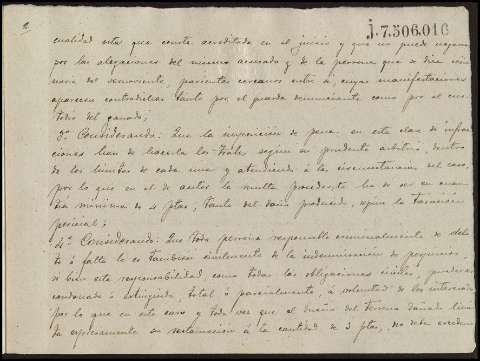 2
j.7.506.016
cualidad esta que consta acreditada en el juicio y que no puede negarse
por las alegaciones del mismo acusado y de la persona que se dice
del semoviente, parientes cercanos entre sí, cuyas manifestaciones
aparecen contradichas tanto por el guarda denunciante como por el cus-
todio del ganado;
3º Considerando: Que la imposición de pena en esta clase de infrac
ciones han de hacerla los según su prudente arbitrio, dentro
de los límites de cada una y atendiendo a las circunstancias del caso,
por lo que en el de autos la multa procedente ha de ser en cuan
tía mínima de 4 ptas, tanto del daño producido, según la tasación
pericial;
4º Considerando: Que toda persona responsable criminalmente de deli
to ó falta lo es tambien civilmente de la indemnización de perjuicios,
si bien esta responsabilidad como todas las obligaciones civiles, puede ser
condonada ó extinguida, total ó parcialmente, á voluntad de los interesados
por lo que en este caso y toda vez que el dueño del terreno dañado limi
ta expresamente su reclamación á la cantidad de 3 ptas, no debe excederse